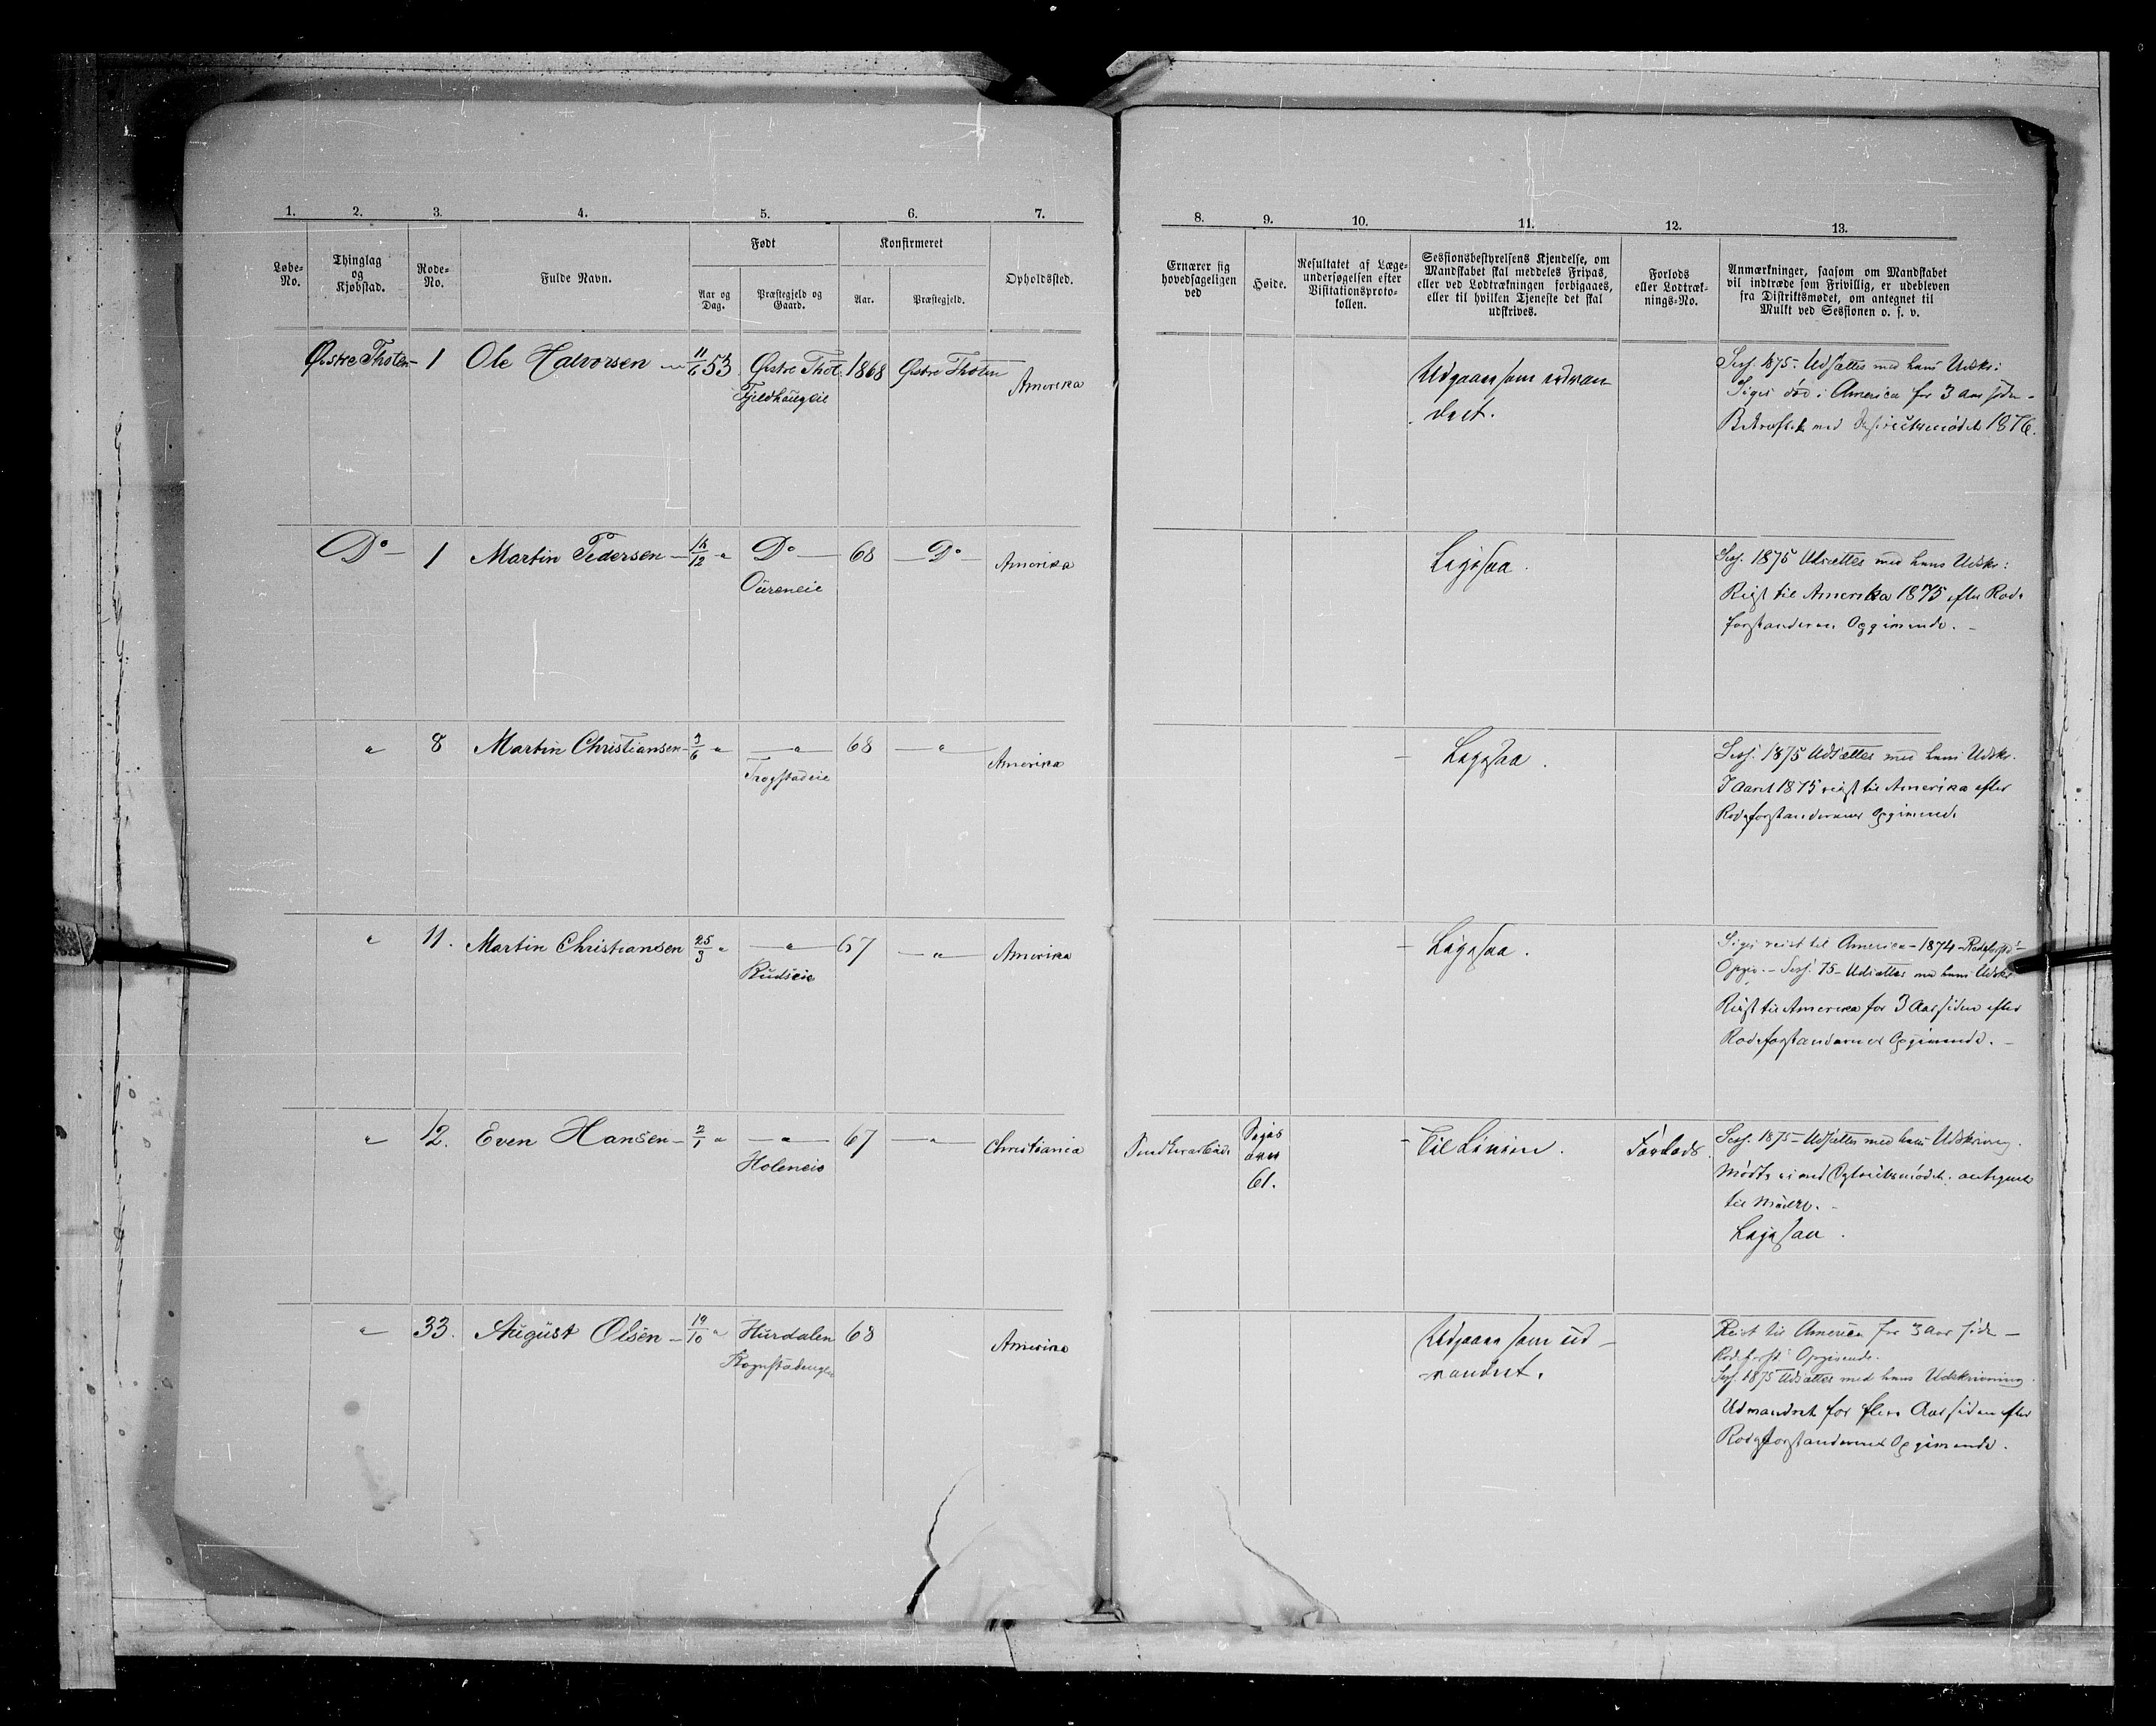 1. 2. 3. 4. 5. 6. 7.
8. 9. 10. 11. 12. 13.
Løbe-
No.
Thinglag
og
Kjøbstad.
Rode-
No.
Fulde Navn.
Født
Aar og
Dag.
Præstegjeld og
Gaard.
Konfirmeret
Aar.
Præstegjeld.
Opholdssted.
Ernærer sig
hovedsageligen
ved
Høide.
Resultatet af Læge-
undersøgelsen efter
Visitationsproto-
kollen.
Sessionsbestyrelsens Kjendelse, om
Mandskabet skal meddeles Fripas,
eller ved Lodtrækningen forbigaaes,
eller til hvilken Tjeneste det skal
udskrives.
Forlods
eller Lodtræk-
nings-No.
Anmærkninger, saasom om Mandskabet
vil indtræde som Frivillig, er udebleven
fra Distriktsmødet, om antegnet til
Mulkt ved Sessionen o. s. v.
Østre Thoten 1 Ole Halvorsen 11/6 53 Østre Thot. 1868 Østre Thoten Amerika
Fjeldhaugeie
Udgaaer som udvan
dret.
Sess. 1875. Udsættes med hans Udskr:
Siges død i America for 3 Aar siden -
Bekræftet ved Distriktsmødet 1876.
Do 1 Martin Pedersen 14/12 " Do 68 Do Amerika
Oureneie
Ligesaa.
Sess. 1875 Udsættes med hans Udskr:
Reist til Amerika 1875 efter Rode
forstanderens Opgivende. -
" 8 Martin Christiansen 3/6 " " 68 " Amerika
Trogstadeie
- Ligesaa.
Sess. 1875 Udsættes med hans Udskr.
I Aaret 1875 reist til Amerika efter
Rodeforstanderens Opgivende
" 11. Martin Christiansen 25/3 " " 67 " Amerika
Rudseie
- Ligesaa.
Siges reist til America - 1874 - Rodeforst:
Opgiv. - Sess. 75 - Udsættes med hans Udskr
Reist til Amerika for 3 Aar siden efter
Rodeforstanderens Opgivende. -
" 12. Even Hansen - 2/1 " " 67 " Christiania
Holeneie
Siges
over
61.
- Til Linien. Forlods.
Sess. 1875 - Udsættes med hans Udskrivning.
Mødte ei ved Distriktsmødet. antegnet
til Mulkt. -
Ligesaa.
" 33. August Olsen - 19/10 " Hurdalen 68 Amerika
Udgaaer som ud -
vandret.
Reist til America for 3 Aar siden -
Rodeforst: Opgivende.
Sess. 1875 Udsættes med hans Udskrivning.
Udvandret for flere Aar siden efter
Rodeforstanderens Opgivende.